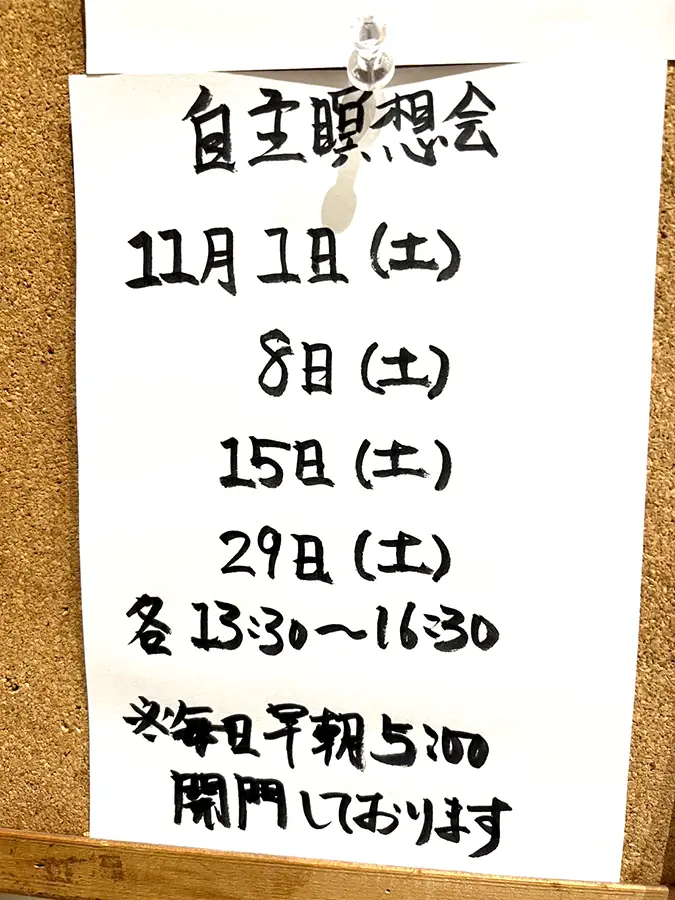 自主瞑想会
11月1日(土)
8日(土)
15日(土)
29日(土)
各13:30〜16:30
※毎日早朝5:00
開門しております